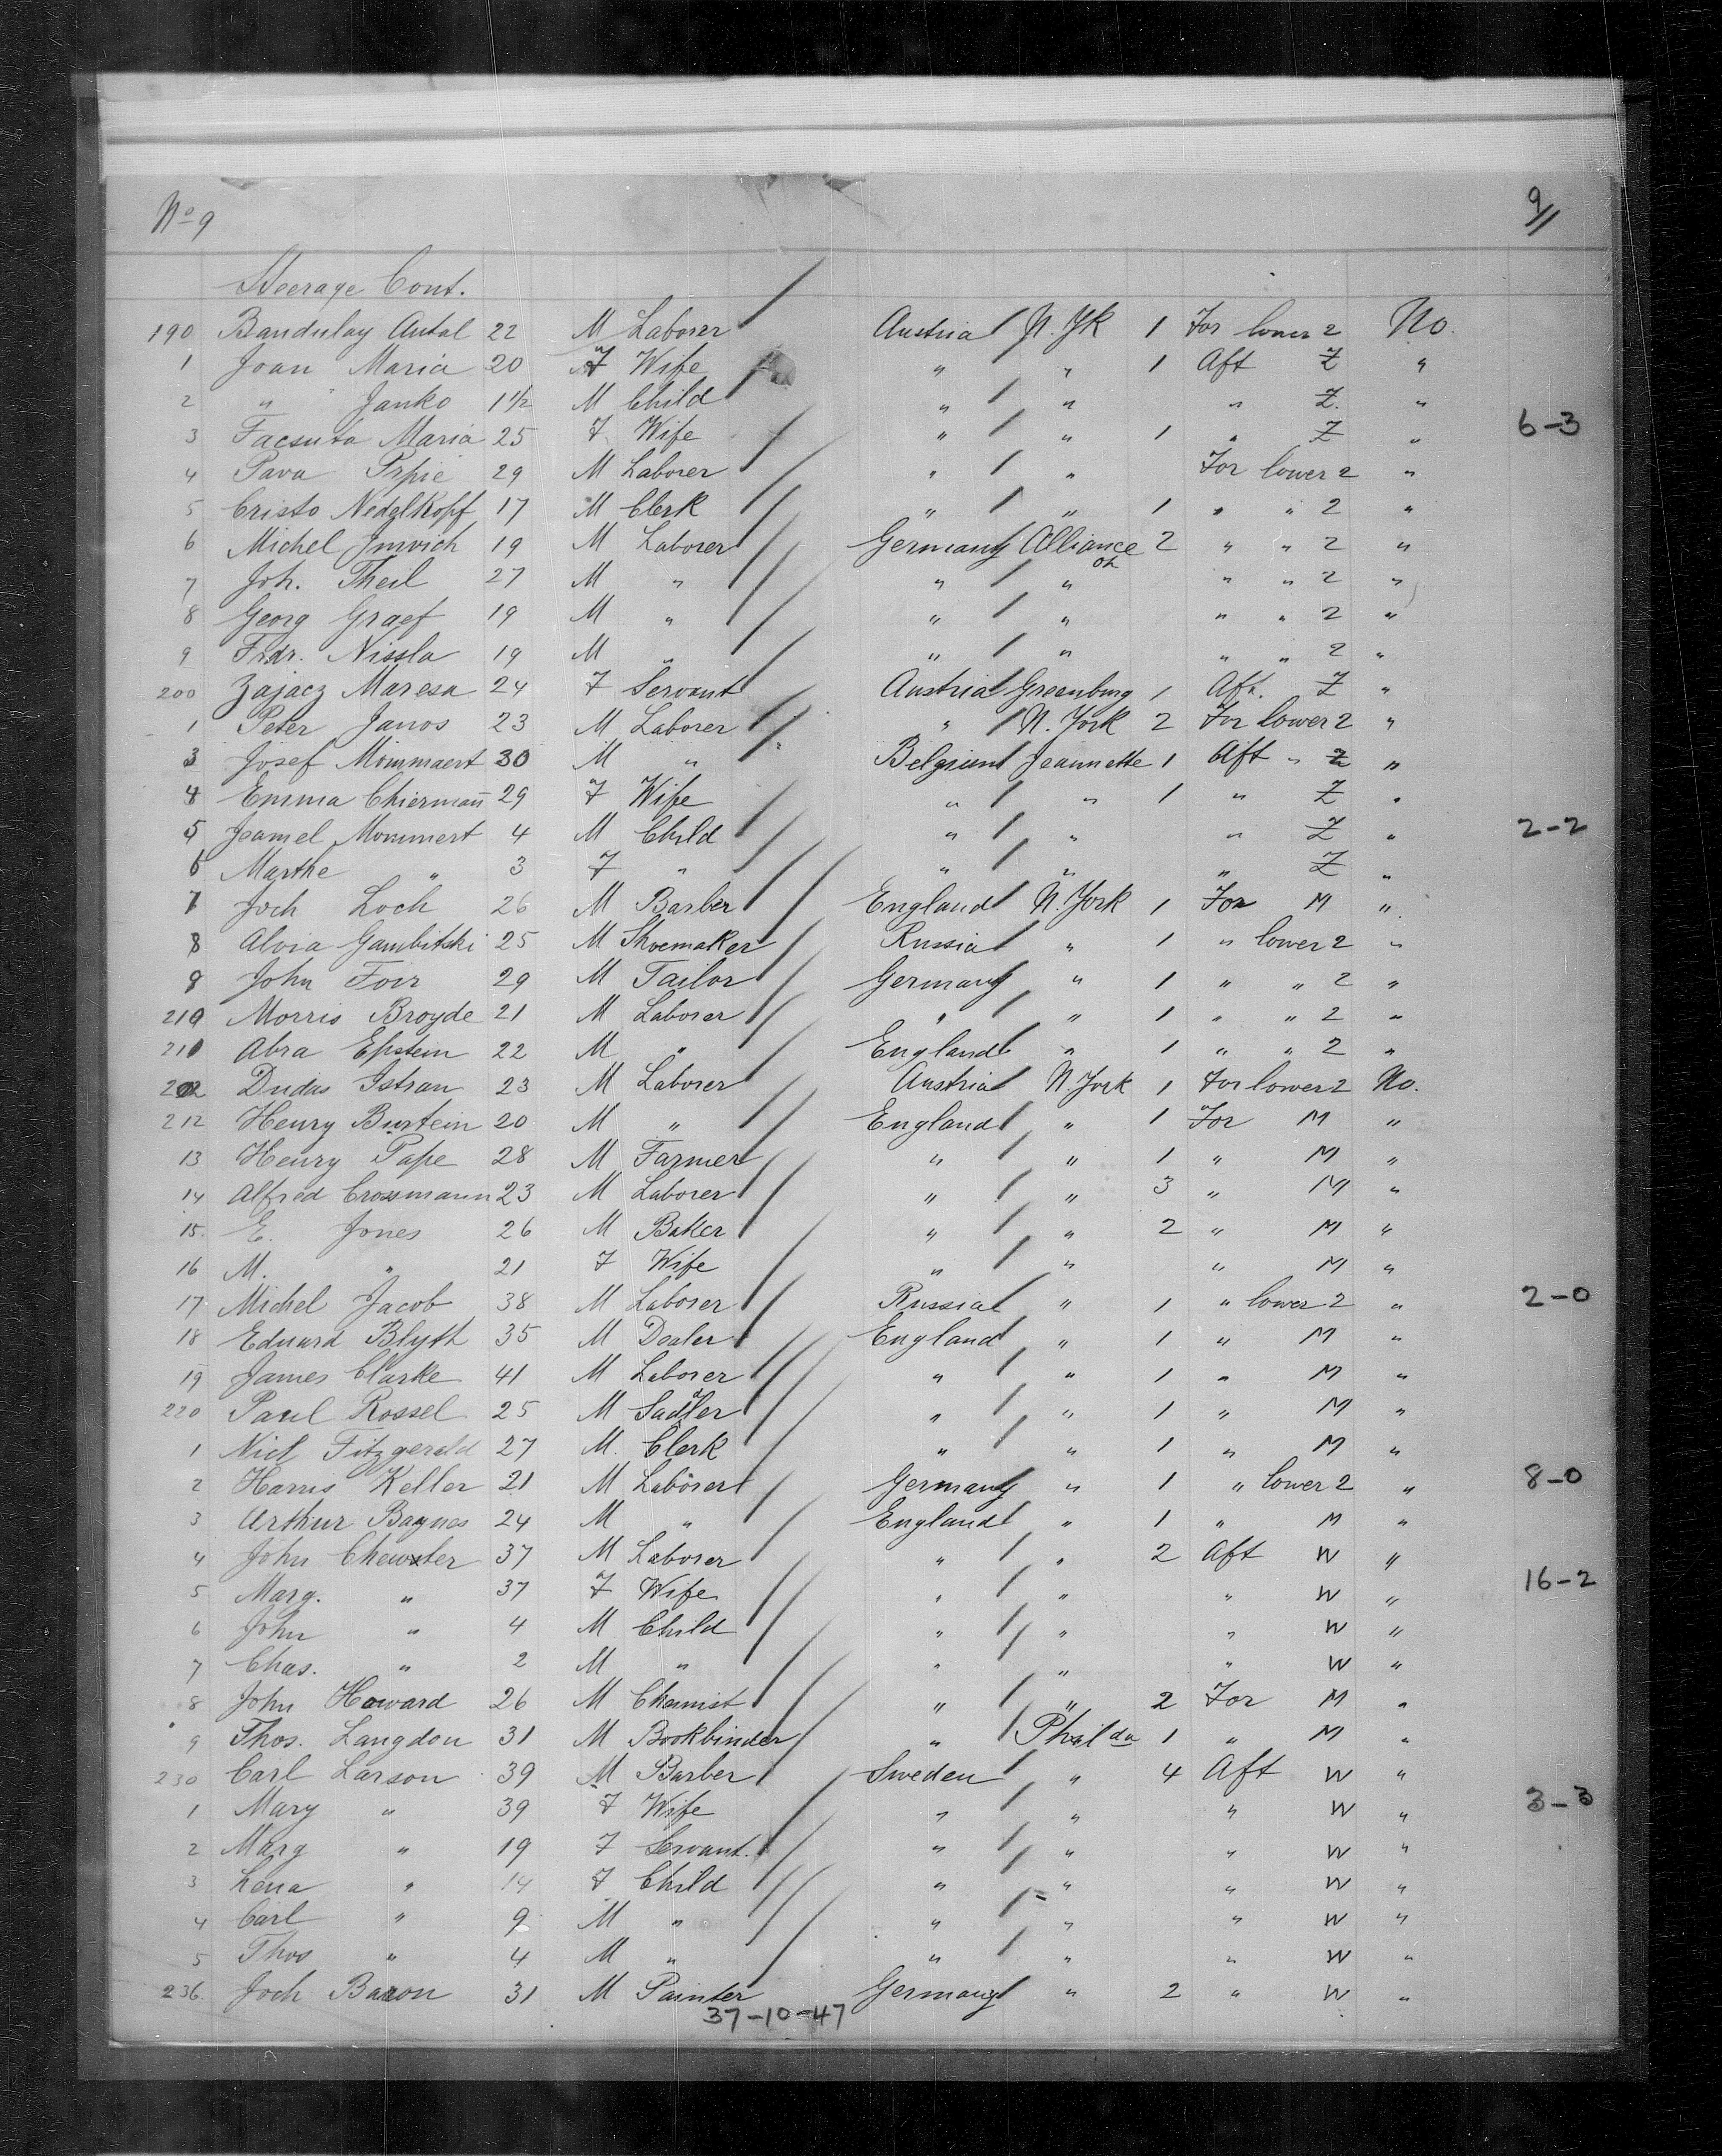 No 9 9/1
Steerage Cont.
190 Bandulay Antal 22 M Laborer Austria N. Yk 1 For lower 2 No.
1 Joan Maria 20 F Wife " " 1 Aft Z "
2 " Janko 1½ M Child " " " Z. "
3 Facsuta Maria 25 F Wife " " 1 " Z " 6-3
4 Pava Prpic 29 M Laborer " " For lower 2 "
5 Cristo Nedelkopf 17 M Clerk " " 1 " " 2 "
6 Michel 19 M Laborer Germany Alliance Oh 2 " " 2 "
7 Joh. Theil 27 M " " " " " 2 "
8 Georg Graef 19 M " " " " " 2 "
9 Frdr. Nissla 19 M " " " " " 2 "
200 Zajacz Maresa 24 F Servant Austria Greenburg 1 Aft. Z "
1 Peter Janos 23 M Laborer " N. York 2 For lower 2 "
3 Josef Mommaert 30 M " Belgium Jeannette 1 Aft " Z "
4 Emma Chiermañ 29 F Wife " " 1 " Z "
5 Jeamel Mommert 4 M Child " " " Z " 2-2
6 Marthe " 3 F " " " " Z "
7 Joch Loch 26 M Barber England N. York 1 For M "
8 Alvia Gambitski 25 M Shoemaker Russia " 1 " lower 2 "
9 John Foir 29 M Tailor Germany " 1 " " 2 "
210 Morris Broyde 21 M Laborer " " 1 " " 2 "
211 Abra Epstein 22 M " England " 1 " " 2 "
202 Dudas Istvan 23 M Laborer Austria N. York 1 For lower 2 No.
212 Henry Burtein 20 M " England " 1 For M "
13 Henry Pape 28 M Farmer " " 1 " M "
14 Alfred Crossmann 23 M Laborer " " 3 " M "
15. E. Jones 26 M Baker " " 2 " M "
16 M. " 21 F Wife " " " M "
17 Michel Jacob 38 M Laborer Russia " 1 " lower 2 " 2-0
18 Eduard Blyth 35 M Dealer England " 1 " M "
19 James Clarke 41 M Laborer " " 1 " M "
220 Paul Rossel 25 M Sadler " " 1 " M "
1 Nicl Fitzgerald 27 M. Clerk " " 1 " M "
2 Harris Keller 21 M Laborer Germany " 1 " lower 2 " 8-0
3 Arthur Baynes 24 M " England " 1 " M "
4 John Chewster 37 M Laborer " " 2 Aft W "
5 Marg. " 37 F Wife " " " W " 16-2
6 John " 4 M Child " " " W "
7 Chas. " 2 M " " " " W "
8 John Howard 26 M Chemist " " 2 For M "
9 Thos. Langdon 31 M Bookbinder " Philda 1 " M "
230 Carl Larson 39 M Barber Sweden " 4 Aft W "
1 Mary " 39 F Wife " " " W " 3-3
2 Marg " 19 F Servant. " " " W "
3 Lena " 14 F Child " " " W "
4 Carl " 9 M " " " " W "
5 Thos " 4 M " " " " W "
236 Joch Baron 31 M Painter Germany " 2 " W "
37-10-47